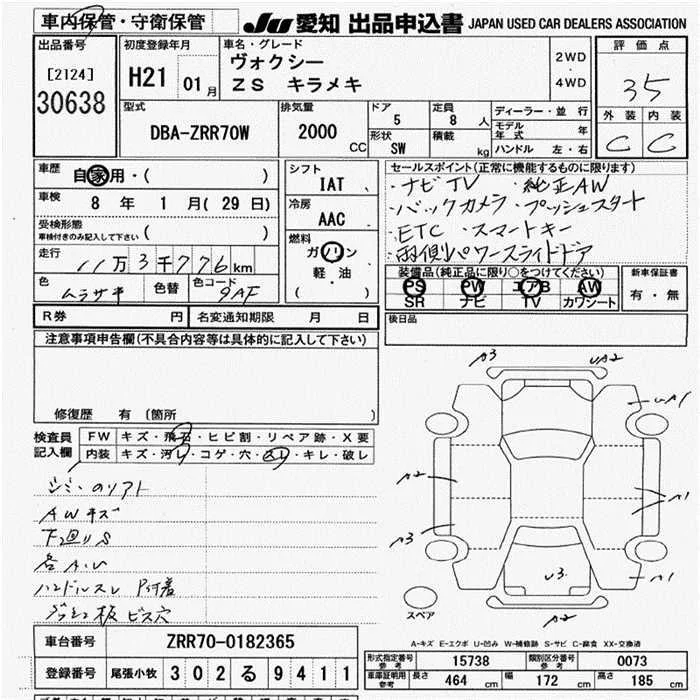 車内保管・守衛保管
JU 愛知 出品申込書 JAPAN USED CAR DEALERS ASSOCIATION
出品番号
[2124]
30638
初度登録年月
H21 01 月
車名・グレード
ヴォクシー
ZS キラメキ
2WD
・
4WD
評価点
35
外装 内装
C C
型式
DBA-ZRR70W
排気量
2000 CC
ドア
5
形状
SW
定員
8 人
積載
kg
ディーラー・並行
モデル年式 年
ハンドル 左・右
車歴
自家用・( )
車検
8 年 1 月(29日)
受検形態
車検付きのみ記入して下さい ( )
走行
11万3千776km
色
ムラサキ
色替
色コード
9AF
シフト
IAT
冷房
AAC
燃料
ガソリン
軽・油
( )
セールスポイント(正常に機能するものに限ります)
・ナビTV ・純正AW
・バックカメラ・プッシュスタート
・ETC ・スマートキー
・両側パワースライドドア
装備品(純正品に限り○をつけてください)
PS PW エアB AW
SR ナビ TV カワシート
新車保証書
有・無
R券 円
名変通知期限 月 日
後日品
注意事項申告欄(不具合内容等は具体的に記入して下さい)
修復歴 有 〔箇所 〕
検査員記入欄
FW キズ・飛石・ヒビ割・リペア跡・X要
内装 キズ・汚レ・コゲ・穴・スレ・キレ・破レ
AWキズ
下廻りS
ハンドルスレ P付着
板ビス穴
A3
UA2
UA1
A2
A1
A3
A1
U3
A2
スペア
A-キズ E-エクボ U-凹み W-補修跡 S-サビ C-腐食 XX-交換済
車台番号
ZRR70-0182365
登録番号
尾張小牧 302 る 9411
形式指定番号 参考 15738
類別区分番号 参考 0073
車庫証明用 参考 長さ 464 cm 幅 172 cm 高さ 185 cm